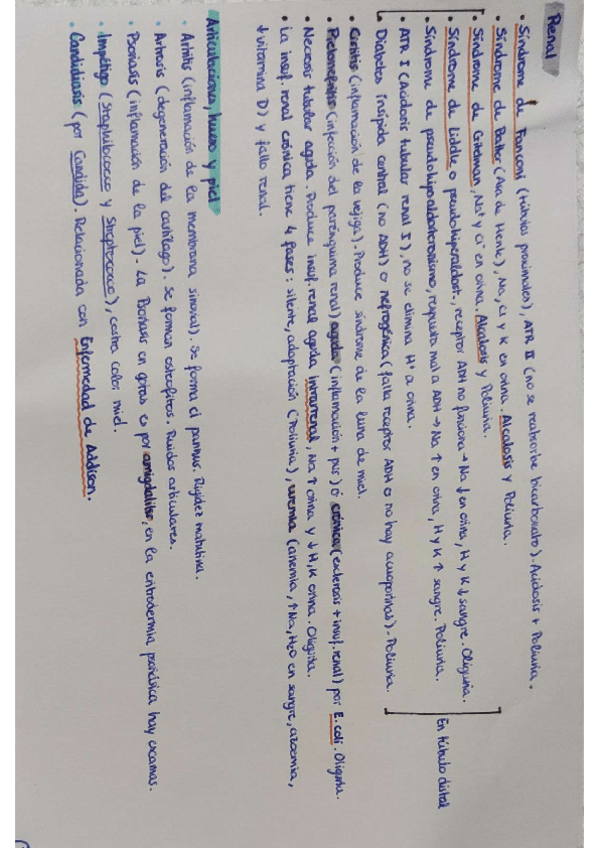 Renal
• Síndrome de Fanconi (túbulos proximales), ATR II (no se reabsorbe bicarbonato). Acidosis + Poliuria.
• Síndrome de Bartter (Asa de Henle), Na, Cl y K en orina. Alcalosis y Poliuria.
• Síndrome de Gitelman, Na+ y Cl- en orina. Alcalosis y Poliuria.
• Síndrome de Liddle o pseudohiperaldost., receptor ADH no funciona → Na ↓ en orina, H y K ↓ sangre. Oliguria.
• Síndrome de pseudohipoaldosteronismo, respuesta mal a ADH → Na ↑ en orina, H y K ↑ sangre. Poliuria.
• ATR I (Acidosis tubular renal I), no se elimina H+ a orina.
• Diabetes insípida central (no ADH) o nefrogénica (falla receptor ADH o no hay acuaporinas). Poliuria.
En túbulo distal
• Cistitis (inflamación de la vejiga). Produce síndrome de la luna de miel.
• Pielonefritis (infección del parénquima renal) aguda (inflamación + pus) ó crónica (esclerosis + insuf. renal) por E. coli. Oliguria.
• Necrosis tubular aguda. Produce insuf. renal aguda intrarrenal, Na ↑ orina y ↓ H, K orina. Oliguria.
• La insuf. renal crónica tiene 4 fases: silente, adaptación (Poliuria), uremia (anemia, ↑Na, H2O en sangre, azoemia,
↓ vitamina D) y fallo renal.
Articulaciones, hueso y piel
• Artritis (inflamación de la membrana sinovial). Se forma el pannus. Rigidez matutina.
• Artrosis (degeneración del cartílago). Se forman osteofitos. Ruidos articulares.
• Psoriasis (inflamación de la piel). La Psoriasis en gotas es por amigdalitis, en la eritrodermia psoriásica hay escamas.
• Impétigo (Staphilococo y Streptococo), costra color miel.
• Candidiasis (por Candida). Relacionada con Enfermedad de Addison.